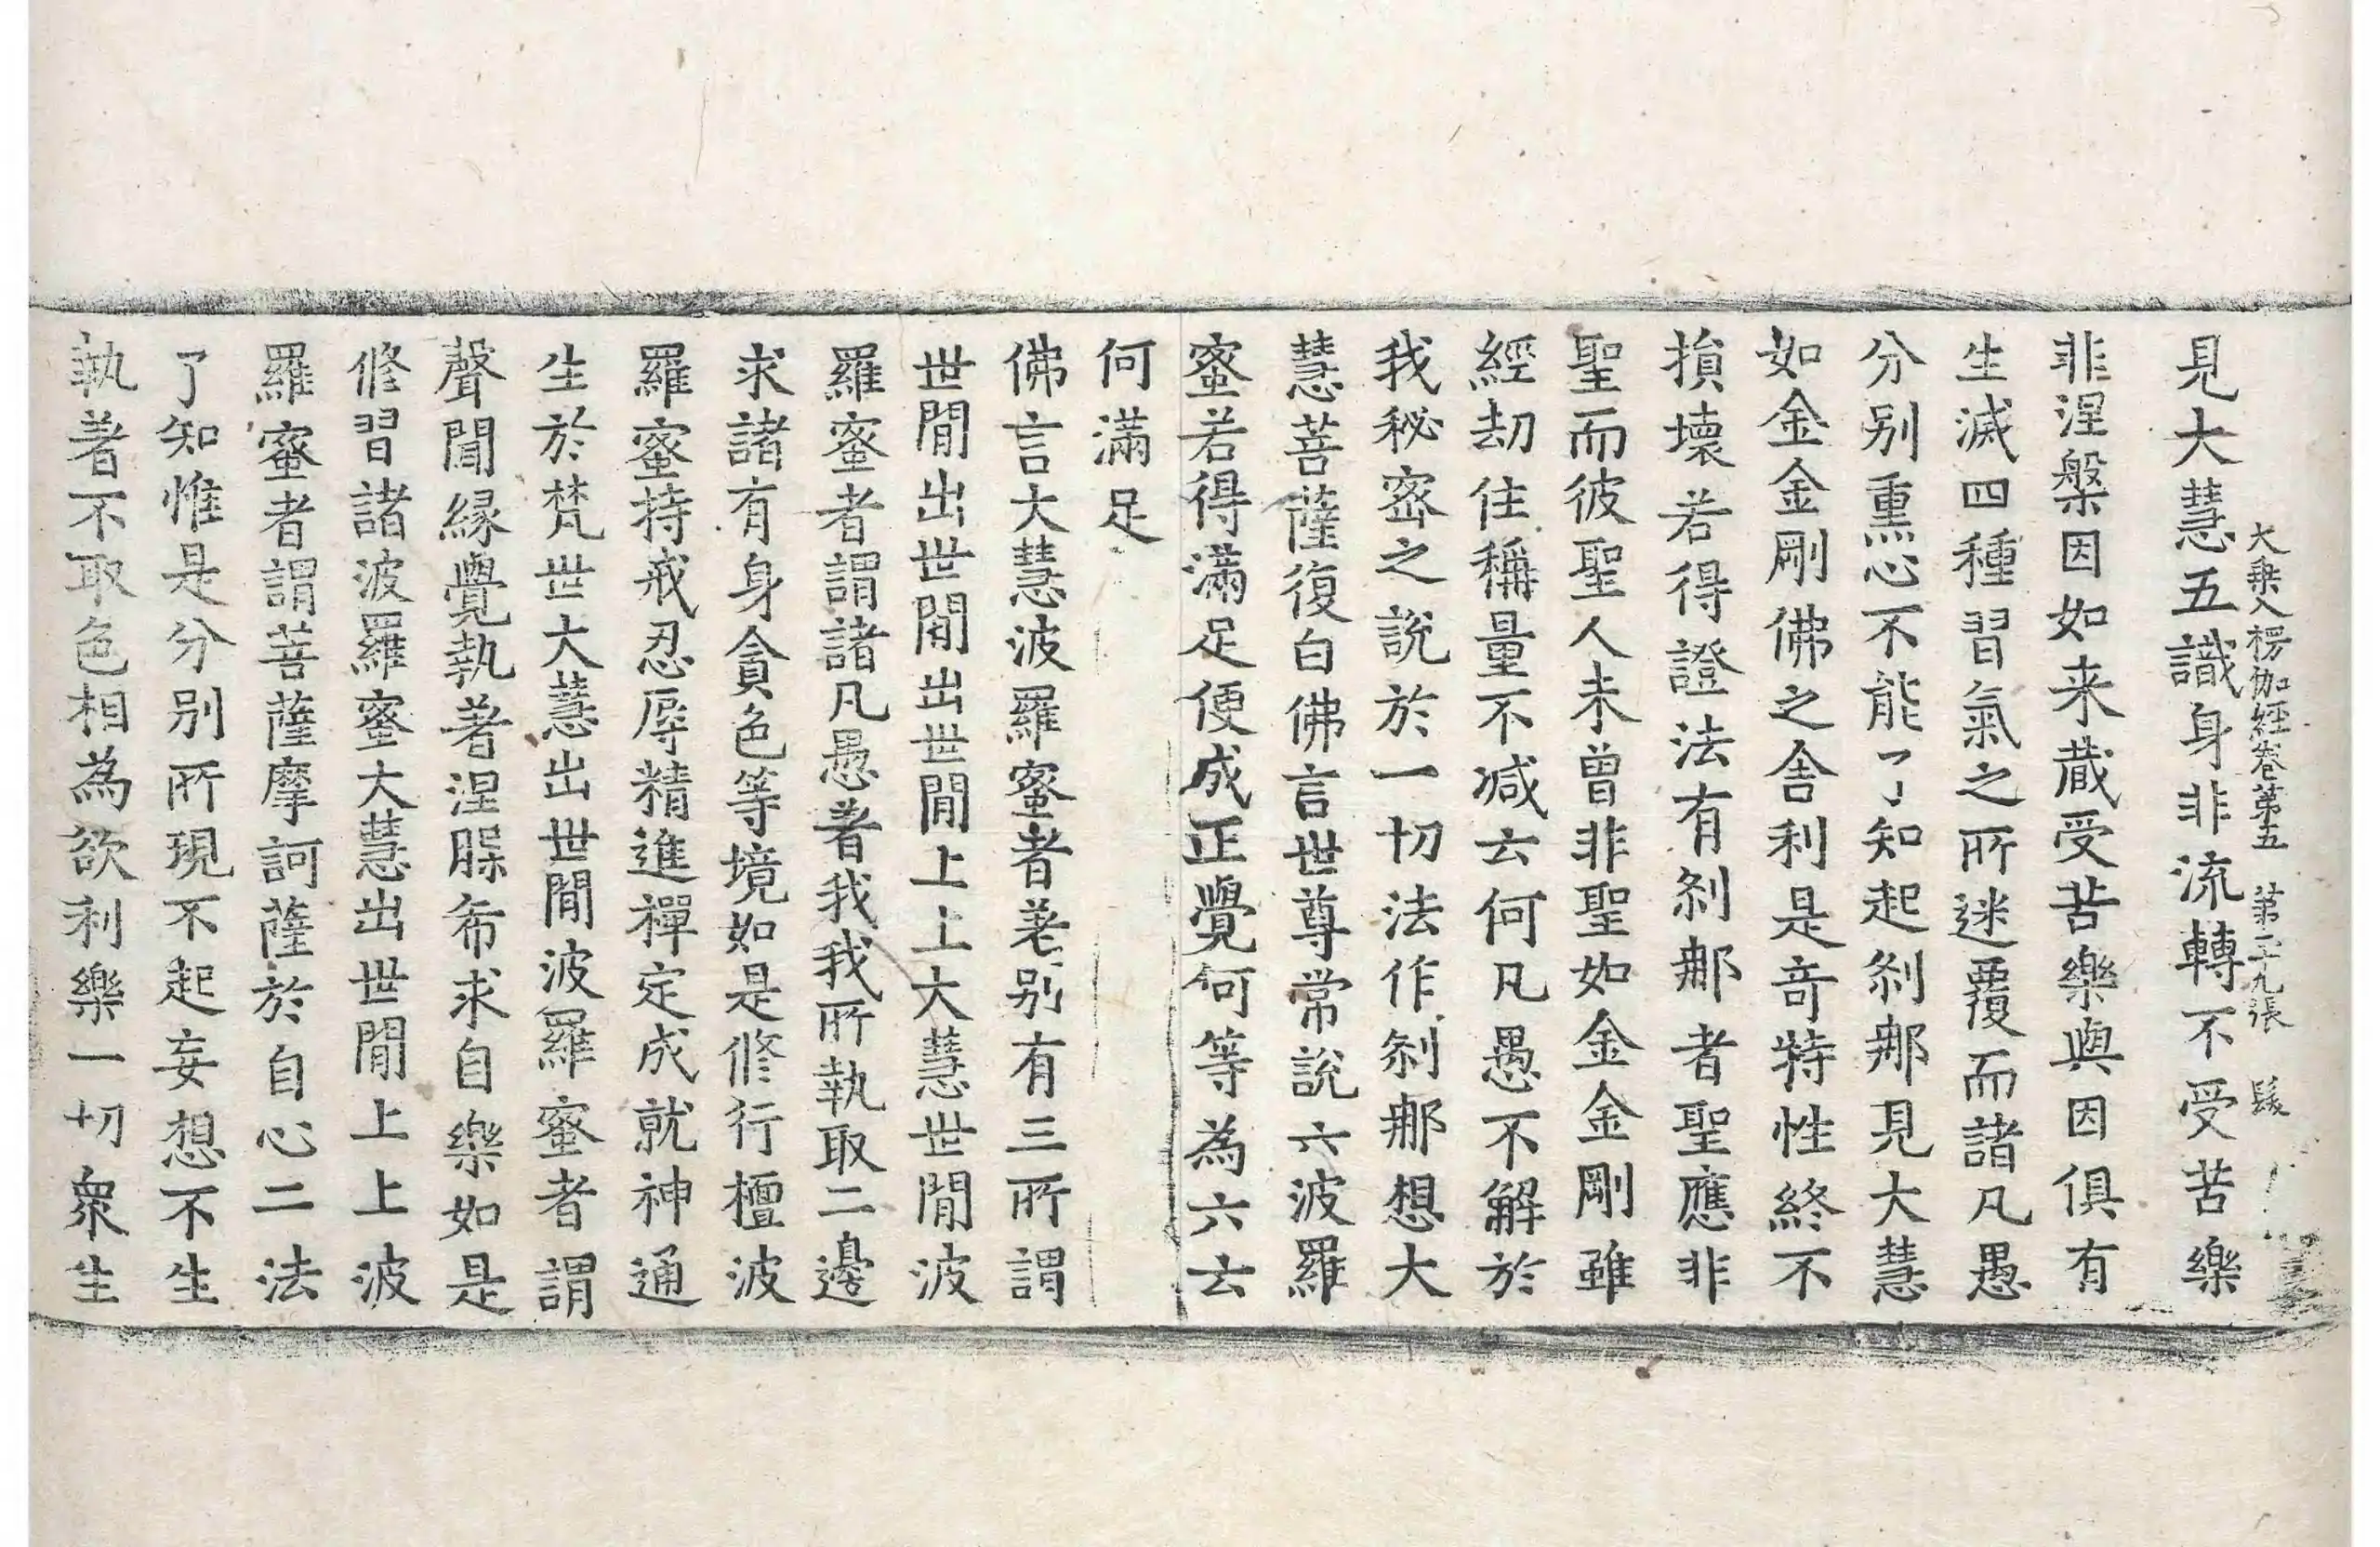 大乗入楞伽經卷第五 第二十九張 髮
見大慧五識身非流轉不受苦樂
非涅槃因如来蔵受苦樂與因俱有
生滅四種習氣之所迷覆而諸凡愚
分别熏心不能了知起剎那見大慧
如金金剛佛之舍利是竒特性終不
損壞若得證法有剎那者聖應非
聖而彼聖人未曾非聖如金金剛雖
經劫住稱量不减云何凡愚不解於
我秘密之說於一切法作剎那想大
慧菩薩復白佛言世尊常說六波羅
蜜若得滿足便成正覺何等為六云
何滿足
佛言大慧波羅蜜者差别有三所謂
世閒出世閒出世閒上上大慧世閒波
羅蜜者謂諸凡愚著我我所執取二邊
求諸有身貪色等境如是修行檀波
羅蜜持戒忍辱精進禪定成就神通
生於梵世大慧出世閒波羅蜜者謂
聲聞緣覺執著涅槃希求自樂如是
修習諸波羅蜜大慧出世閒上上波
羅蜜者謂菩薩摩訶薩於自心二法
了知惟是分别所現不起妄想不生
執著不取色相為欲利樂一切衆生